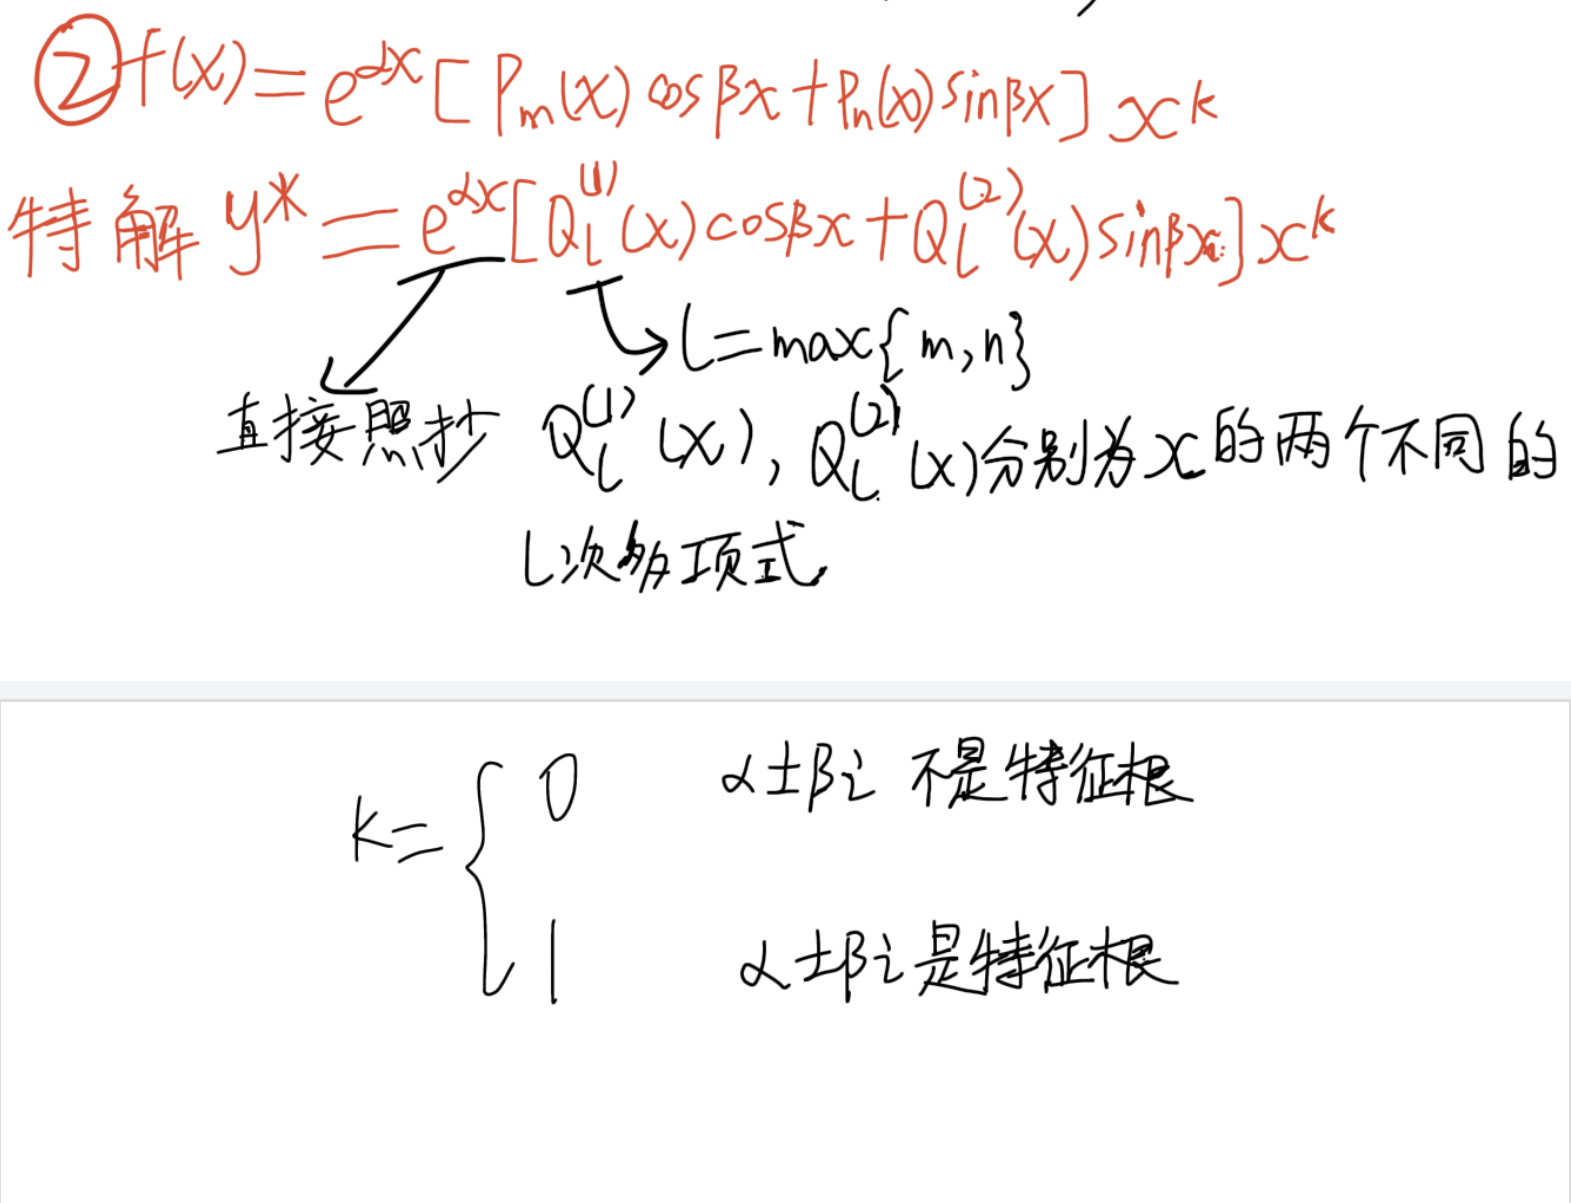 ② f(x)=e^{αx}[P_m(x)cosβx+P_n(x)sinβx]x^k
特解 y*=e^{αx}[Q_l^{(1)}(x)cosβx+Q_l^{(2)}(x)sinβx]x^k
l=max{m,n}
直接照抄 Q_l^{(1)}(x), Q_l^{(2)}(x)分别为x的两个不同的
l次多项式.
k={ 0 α±βi 不是特征根
1 α±βi是特征根